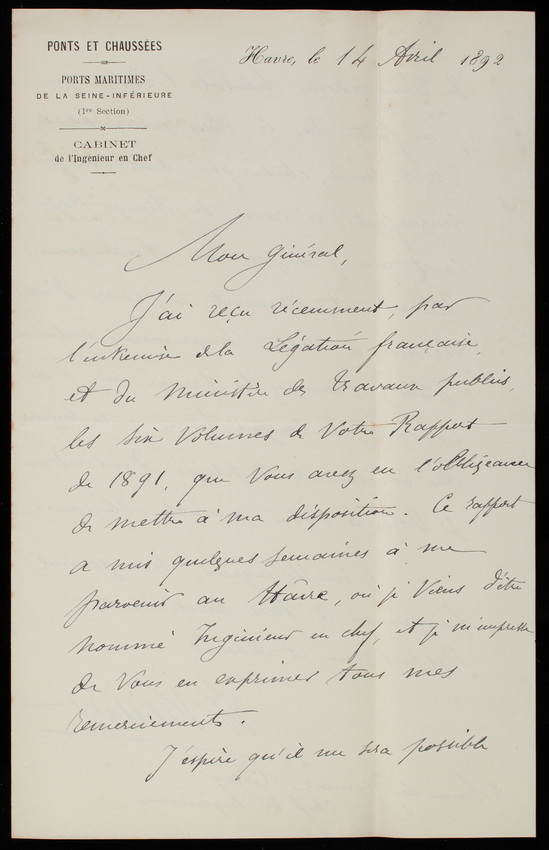 PONTS ET CHAUSSÉES
PORTS MARITIMES
DE LA SEINE-INFÉRIEURE
(1re Section)
CABINET
de l'Ingenieur en Chef
Havre, le 14 Avril 1892
Mon Général,
J'ai reçu récemment, par
l'entremise de la Légation française,
et du Ministère des Travaux publics,
les six volumes de Votre Rapport
de 1891, que Vous avez eu l'obligeance
de mettre à ma disposition. Ce rapport
a mis quelques semaines à me
parvenir au Hâvre, où je Viens d'être
nommé Ingénieur en chef, et je m'empresse
de Vous en exprimer tous mes
remerciements.
J'espère qu'il me sera possible